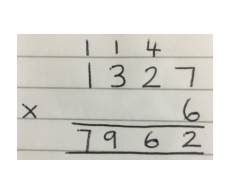 1 1 4
1 3 2 7
× 6
7 9 6 2